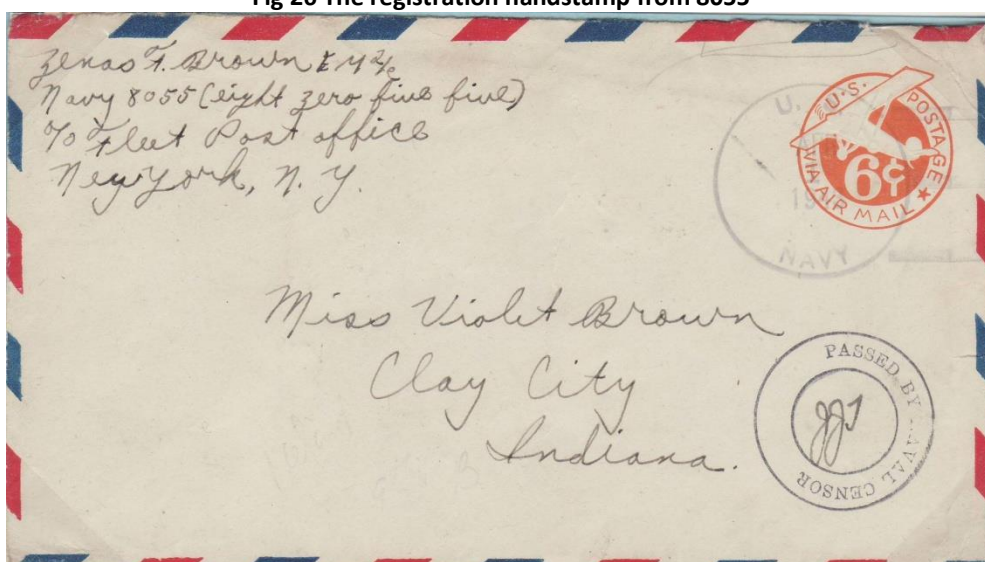 Fig 26 The registration handstamp from 8055
Zenas F. Brown E M 2/c
Navy 8055 (eight zero five five)
c/o Fleet Post office
New York, N. Y.
U.S. POSTAGE
6¢
VIA AIR MAIL
U.
19
NAVY
Miss Violet Brown
Clay City
Indiana.
PASSED BY NAVAL CENSOR